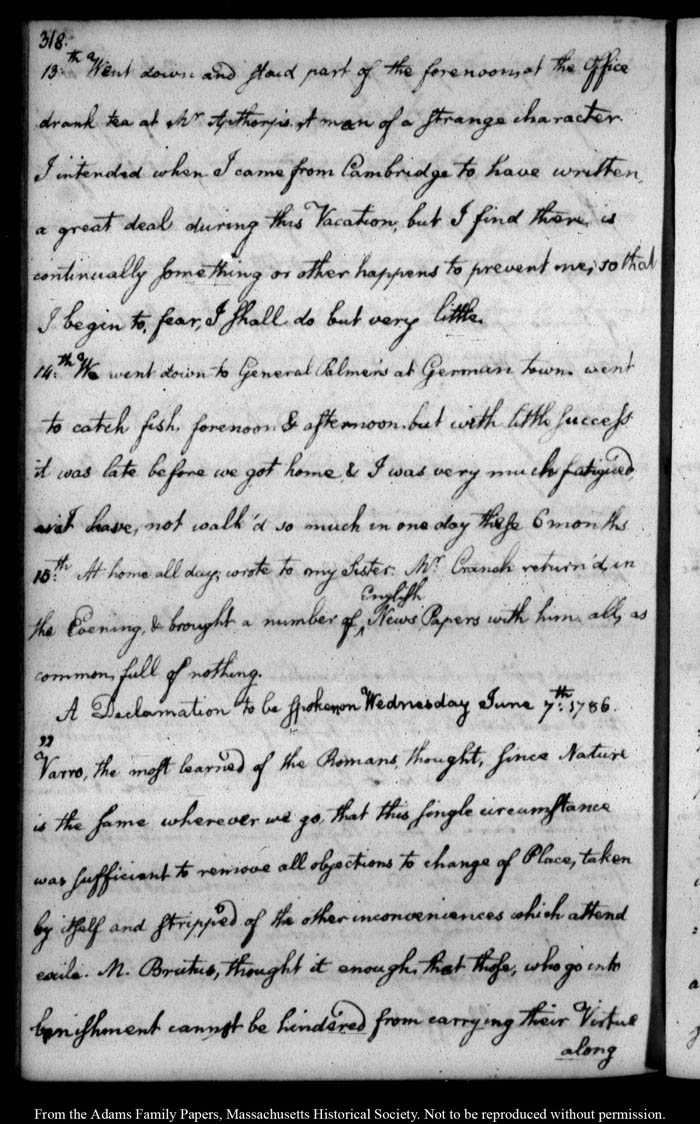 318.
13.th Went down and staid part of the forenoon, at the Office
drank tea at Mr Apthorp's. A man of a strange character.
I intended when I came from Cambridge to have written,
a great deal during this Vacation, but I find there is
continually something or other happens to prevent me, so that
I begin to, fear, I shall do but very little.
14.th We went down to General Palmer's at German town. went
to catch fish, forenoon & afternoon. but with little success
it was late before we got home & I was very much fatigued,
as I have, not walk'd so much in one day these 6 months
15.th At home all day; wrote to my Sister. Mr. Cranch return'd, in
the Evening, & brought a number of ^English News Papers with him. all, as
common, full of nothing.
A Declamation to be spoken, on Wednesday June 7.th 1786.
"Varro, the most learned of the Romans, thought, since Nature
is the same wherever we go, that this single circumstance
was sufficient to remove all objections to change of Place, taken
by itself and stripped of the other inconveniences which attend
exile. M. Brutus, thought it enough, that those, who go into
banishment cannot be hindered from carrying their Virtue
along
From the Adams Family Papers, Massachusetts Historical Society. Not to be reproduced without permission.